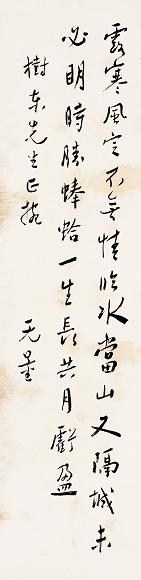 露寒風定不無情臨水當山又隔城未
必明時勝蜯蛤一生長共月虧盈
樹東先生正教
无量